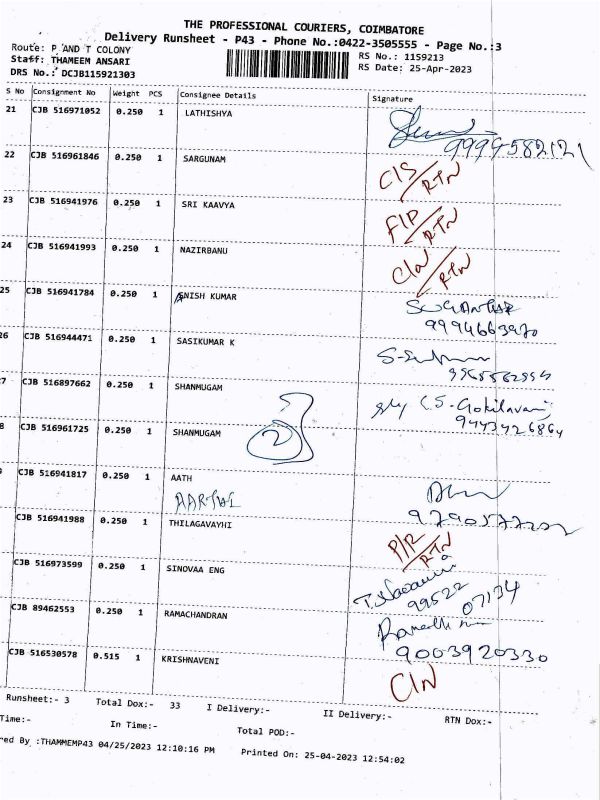 THE PROFESSIONAL COURIERS, COIMBATORE
Delivery Runsheet - P43 - Phone No.:0422-3505555 - Page No.:3
Route: P AND T COLONY
RS No.: 1159213
Staff: THAMEEM ANSARI
RS Date: 25-Apr-2023
DRS No.: DCJB115921303
S No Consignment No Weight PCS Consignee Details Signature
21 CJB 516971052 0.250 1 LATHISHYA
9994582121
22 CJB 516961846 0.250 1 SARGUNAM
C/S/RTN
23 CJB 516941976 0.250 1 SRI KAAVYA
F/P/RTN
24 CJB 516941993 0.250 1 NAZIRBANU
C/N/RTN
25 CJB 516941784 0.250 1 ANISH KUMAR
9994663970
26 CJB 516944471 0.250 1 SASIKUMAR K
7 CJB 516897662 0.250 1 SHANMUGAM
C.S-Gokilavani
9443426864
8 CJB 516961725 0.250 1 SHANMUGAM
2
CJB 516941817 0.250 1 AATH
AARTHI
CJB 516941988 0.250 1 THILAGAVAYHI
P/R/RTN
CJB 516973599 0.250 1 SINOVAA ENG
99522
07134
CJB 89462553 0.250 1 RAMACHANDRAN
9003920330
CJB 516530578 0.515 1 KRISHNAVENI
C/N
Runsheet:- 3 Total Dox:- 33 I Delivery:- II Delivery:- RTN Dox:-
Time:- In Time:- Total POD:-
red By :THAMMEMP43 04/25/2023 12:10:16 PM Printed On: 25-04-2023 12:54:02